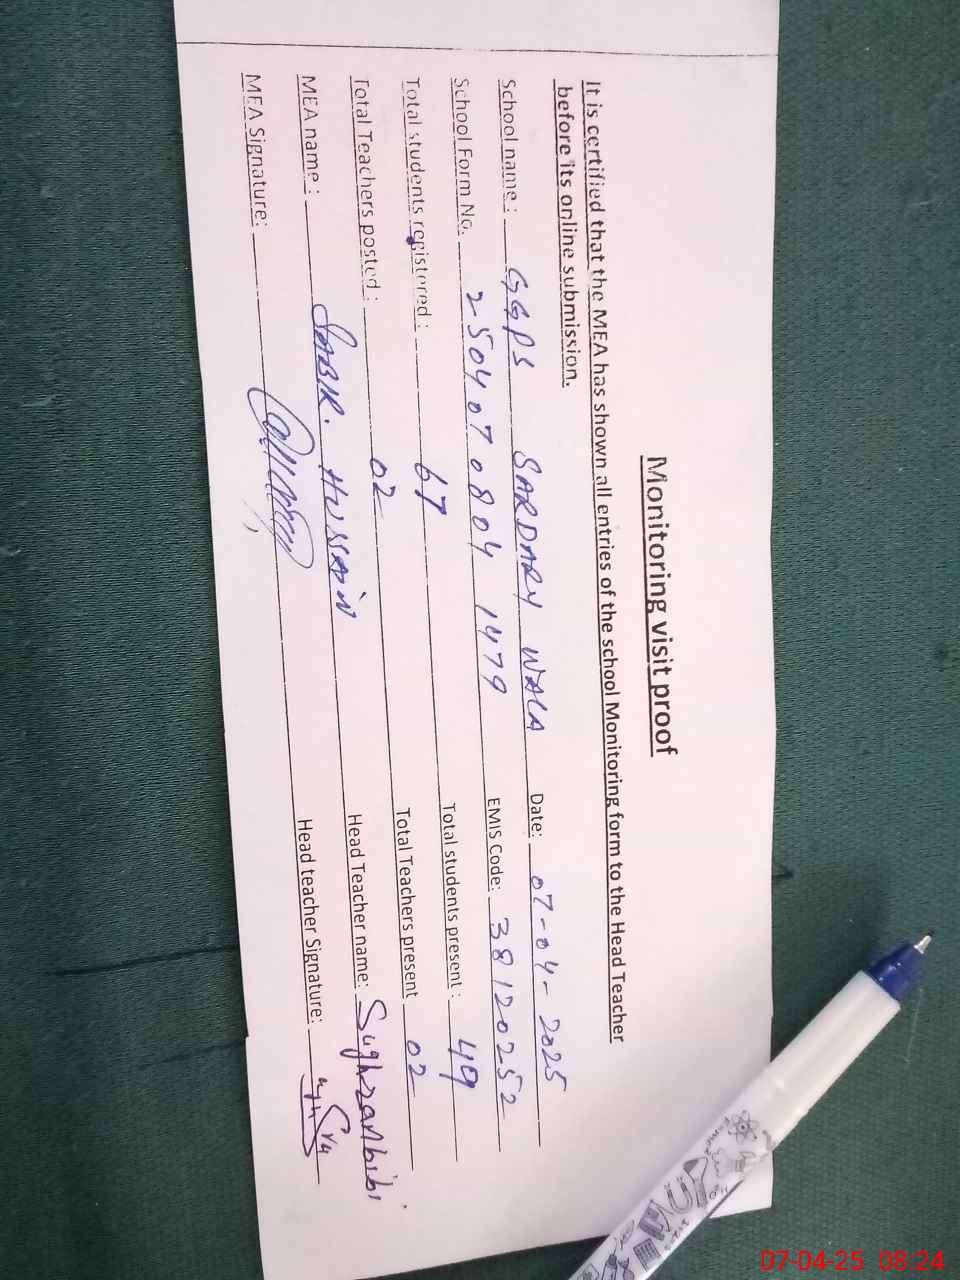 Monitoring visit proof
It is certified that the MEA has shown all entries of the school Monitoring form to the Head Teacher
before its online submission.
School name : GGPS SARDARY WALA Date: 07-04-2025
School Form No. 2504070804 1479 EMIS Code: 38120252
Total students registered : 67 Total students present : 49
Total Teachers posted : 02 Total Teachers present 02
MEA name : SABIR. HUSSAIN Head Teacher name: Sughranbibi
MEA Signature: Head teacher Signature:
07-04-25 08:24